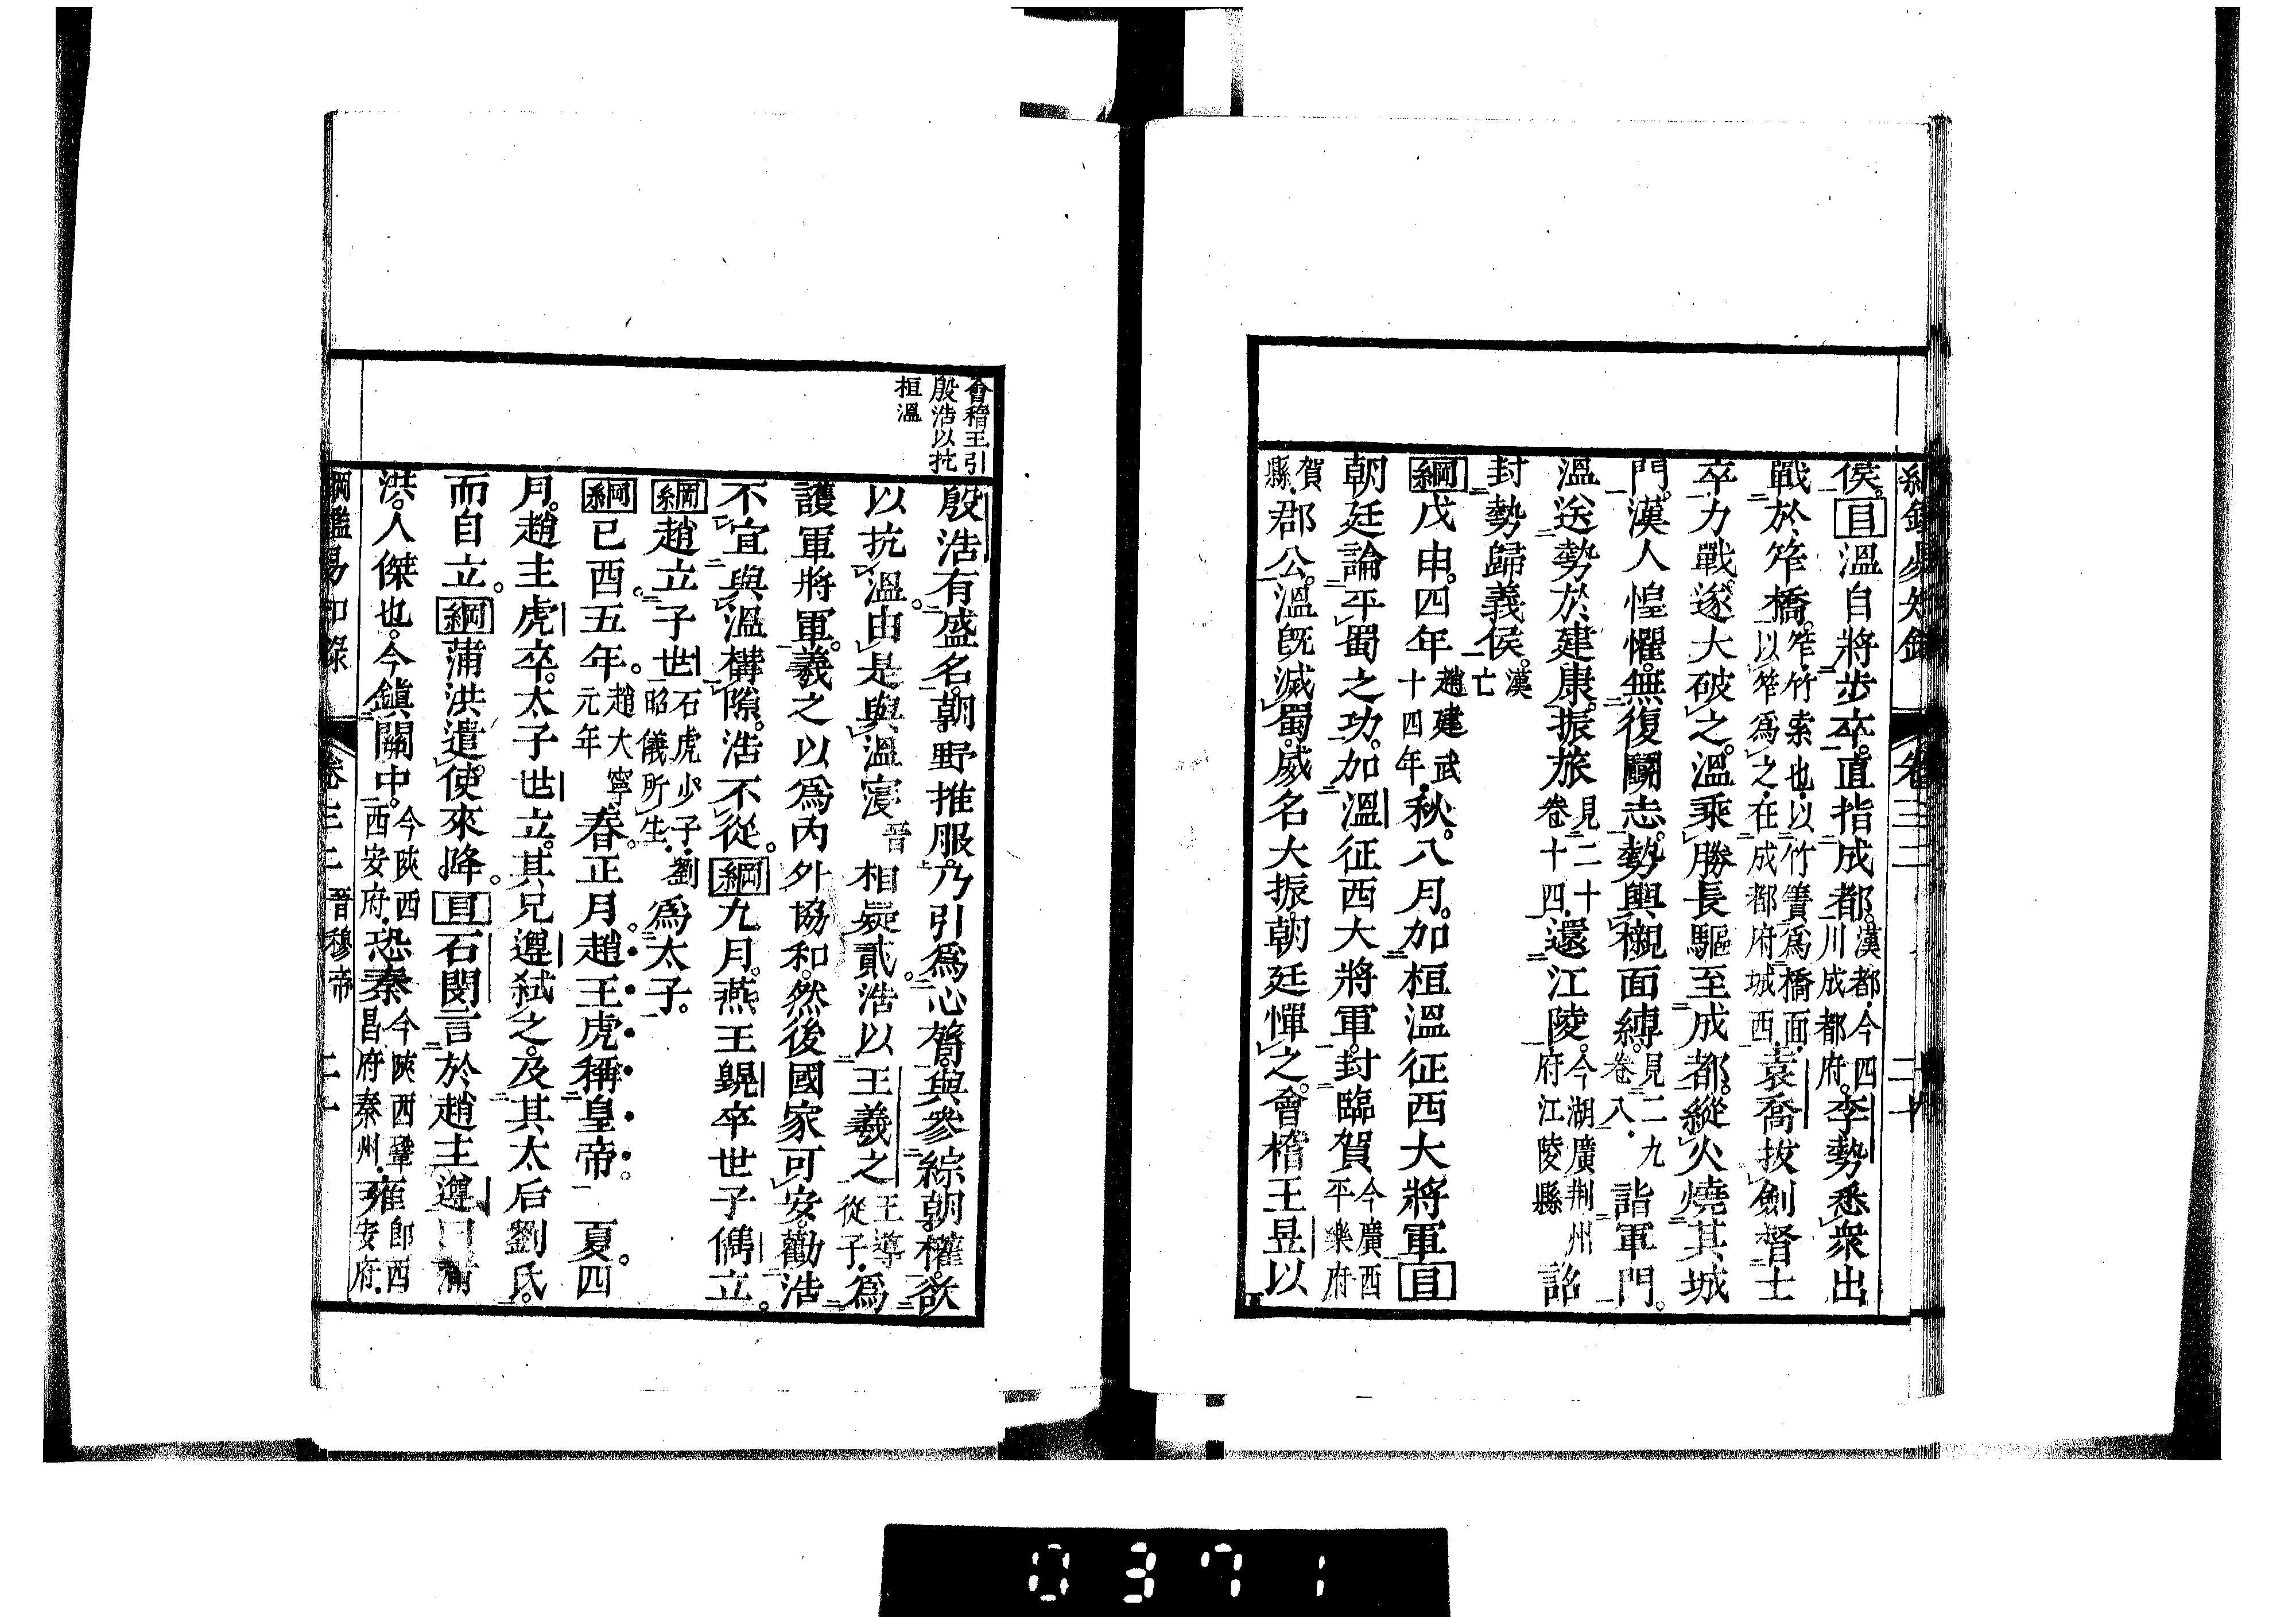 侯。目溫自將步卒。直指成都。漢都。今四川成都府。李勢悉衆出
戰於笮橋。笮。竹索也。以竹簀爲橋面。以笮爲之。在成都府城西。袁喬拔劍督士
卒力戰。遂大破之。溫乘勝長驅至成都。縱火燒其城
門。漢人惶懼。無復鬭志。勢輿櫬面縛。見二九卷八。詣軍門。
溫送勢於建康。振旅見二十卷十四。還江陵。今湖廣荆州府江陵縣詔
封勢歸義侯。漢亡
綱戊申。四年趙建武十四年。秋。八月。加桓溫征西大將軍目
朝廷論平蜀之功。加溫征西大將軍。封臨賀今廣西平樂府
賀縣。郡公。溫旣滅蜀。威名大振。朝廷憚之。會稽王昱以
會稽王引
殷浩以抗
桓溫
殷浩有盛名。朝野推服。乃引爲心膂。與參綜朝權。欲
以抗溫。由是與溫寖晉相疑貳。浩以王羲之王導從子。爲
護軍將軍。羲之以爲內外協和。然後國家可安。勸浩
不宜與溫構隙。浩不從。綱九月。燕王皝卒世子儁立。
綱趙立子世石虎少子。劉昭儀所生。爲太子。
綱己酉。五年。趙大寧元年春。正月。趙王虎稱皇帝 夏。四
月。趙主虎卒。太子世立。其兄遵弑之。及其太后劉氏。
而自立。綱蒲洪遣使來降。目石閔言於趙主遵曰蒲
洪。人傑也。今鎭關中。今陝西西安府。恐秦今陝西鞏昌府秦州。雍卽西安府。
綱鑑易知錄 卷三二 晉穆帝 二十一